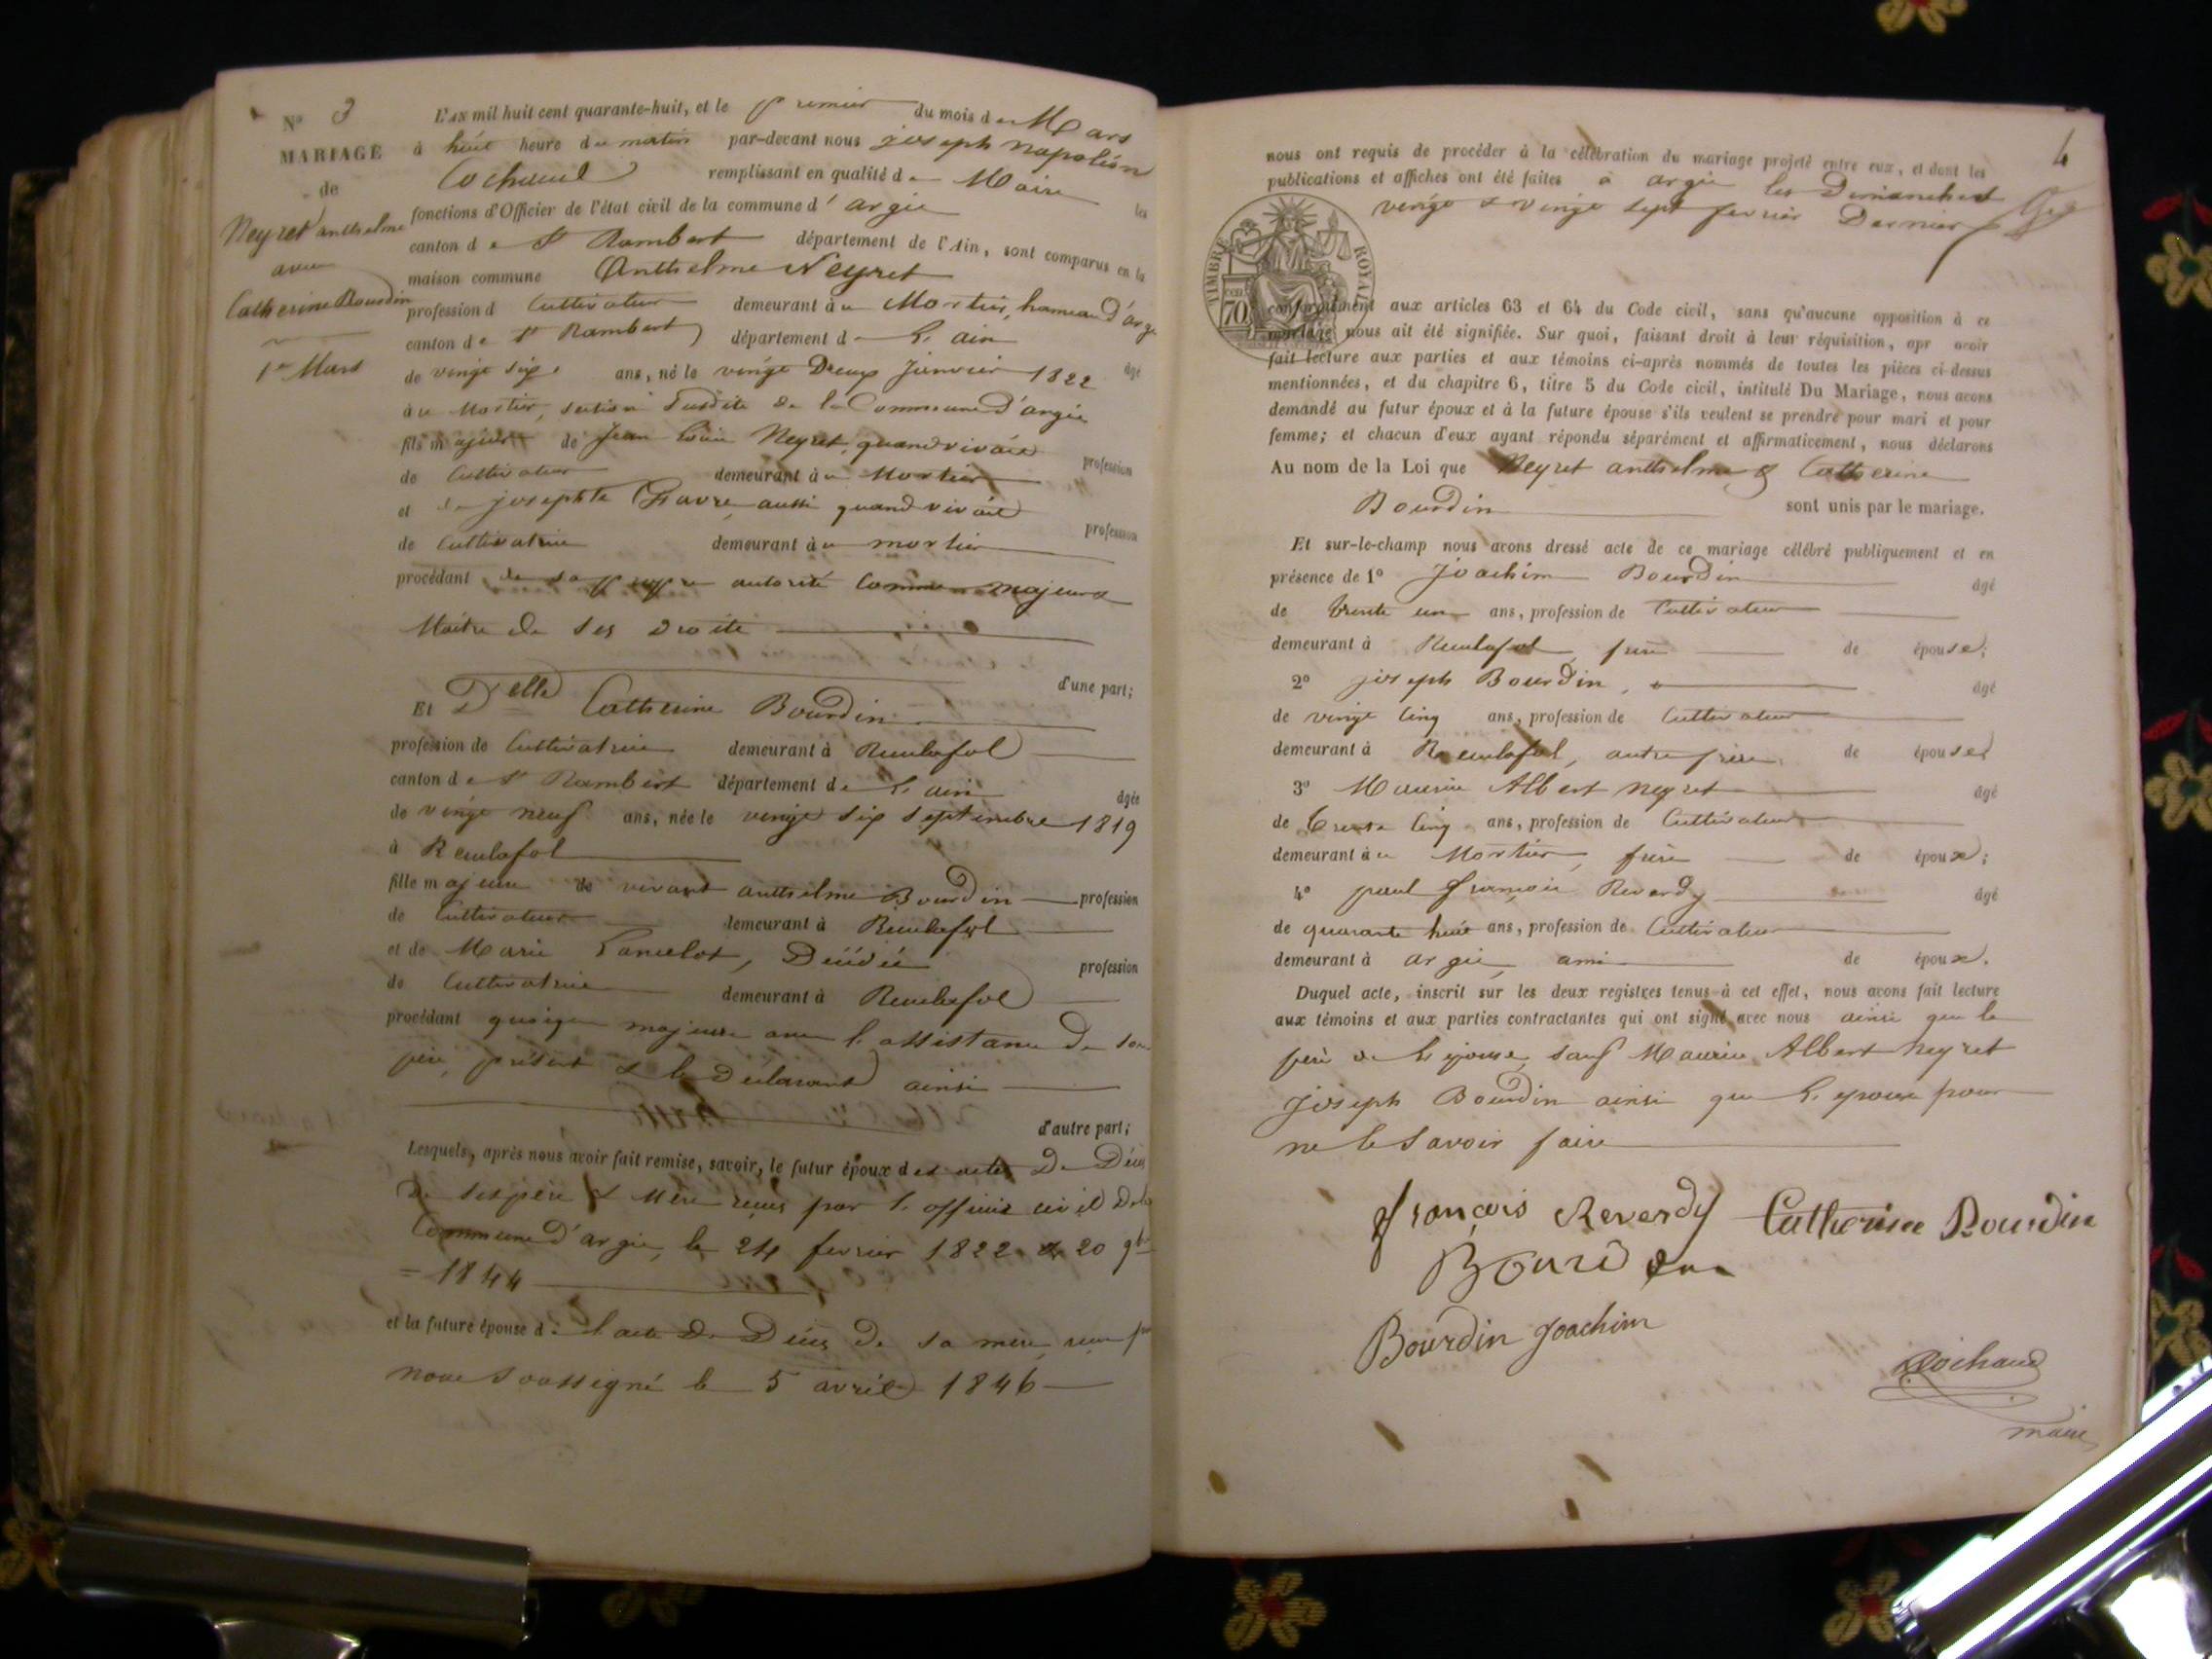 N° 3
MARIAGE
de
Neyret anthelme
avec
Catherine Bourdin
1er Mars
L'AN mil huit cent quarante-huit, et le premier du mois de Mars
à huit heure du matin par-devant nous joseph napoléon
Cochaud remplissant en qualité de Maire les
fonctions d'Officier de l'état civil de la commune d'argis
canton de St Rambert département de l'Ain, sont comparus en la
maison commune Anthelme Neyret
profession d Cultivateur demeurant àu Mortier, hameau d'argis
canton de St Rambert département de L'ain âgé
de vingt six ans, né le vingt Deux Janvier 1822
àu Mortier, section susdite de la Commune d'argis
fils majeur de Jean Louis Neyret, quand vivait profession
de Cultivateur demeurant àu Mortier
et de josephte Chavre aussi quand vivait profession
de Cultivatrice demeurant àu mortier
procédant de sa propre autorité Comme majeur &
Maitre de ses droits
d'une part;
Et Delle Catherine Bourdin
profession de Cultivatrice demeurant à Reculafol
canton de St Rambert département de L'ain âgée
de vingt neuf ans, née le vingt six septembre 1819
à Reculafol
fille majeure de vivant anthelme Bourdin profession
de Cultivateur demeurant à Reculafol
et de Marie Lancelot, Décédée profession
de Cultivatrice demeurant à Reculafol
procédant quoique majeure avec l'assistance De son
père, présent & le Déclarant ainsi
d'autre part;
Lesquels, après nous avoir fait remise, savoir, le futur époux des actes De Décès
De ses père & Mère reçus par l'officier civil De la
Commune d'argis, le 24 fevrier 1822 & 20 9bre
= 1844
et la future épouse de l'acte De Décès de sa mère, reçu par
nous soussigné le 5 avril 1846
4
nous ont requis de procéder à la célébration du mariage projeté entre eux, et dont les
publications et affiches ont été faites à argis les Dimanches
vingt & vingt sept fevrier Dernier
TIMBRE ROYAL
70
conformément aux articles 63 et 64 du Code civil, sans qu'aucune opposition à ce
mariage nous ait été signifiée. Sur quoi, faisant droit à leur réquisition, apr avoir
fait lecture aux parties et aux témoins ci-après nommés de toutes les pièces ci-dessus
mentionnées, et du chapitre 6, titre 5 du Code civil, intitulé Du Mariage, nous avons
demandé au futur époux et à la future épouse s'ils veulent se prendre pour mari et pour
femme; et chacun d'eux ayant répondu séparément et affirmativement, nous déclarons
Au nom de la Loi que Neyret anthelme & Catherine
Bourdin sont unis par le mariage.
Et sur-le-champ nous avons dressé acte de ce mariage célébré publiquement et en
présence de 1° Joachim Bourdin âgé
de trente un ans, profession de Cultivateur
demeurant à Reculafol frère de épouse;
2° joseph Bourdin, âgé
de vingt cinq ans, profession de Cultivateur
demeurant à Reculafol, autre frère de épouse
3° Maurice Albert neyret âgé
de trente cinq ans, profession de Cultivateur
demeurant àu Mortier, frère de époux;
4° paul françois Reverdy âgé
de quarante huit ans, profession de Cultivateur
demeurant à argis, ami de époux.
Duquel acte, inscrit sur les deux registres tenus à cet effet, nous avons fait lecture
aux témoins et aux parties contractantes qui ont signé avec nous ainsi que le
père de l'épouse, sauf Maurice Albert neyret
Joseph Bourdin ainsi que L'epoux pour
ne le savoir faire
françois Reverdy Catherine Bourdin
Bourdin
Bourdin Joachim
Cochaud
maire